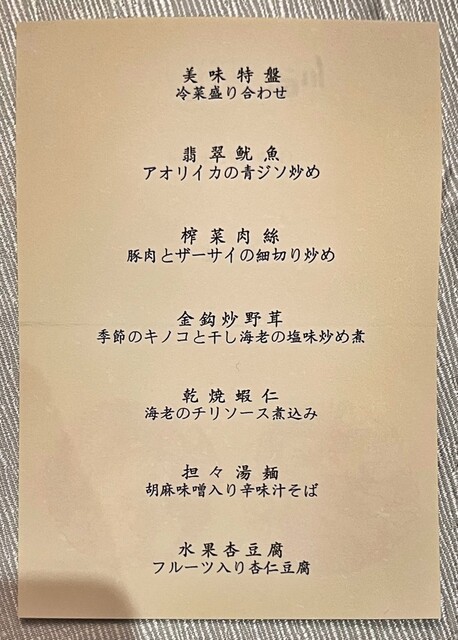 美味特盤
冷菜盛り合わせ
翡翠魷魚
アオリイカの青ジソ炒め
榨菜肉絲
豚肉とザーサイの細切り炒め
金鈎炒野茸
季節のキノコと干し海老の塩味炒め煮
乾焼蝦仁
海老のチリソース煮込み
担々湯麺
胡麻味噌入り辛味汁そば
水果杏豆腐
フルーツ入り杏仁豆腐